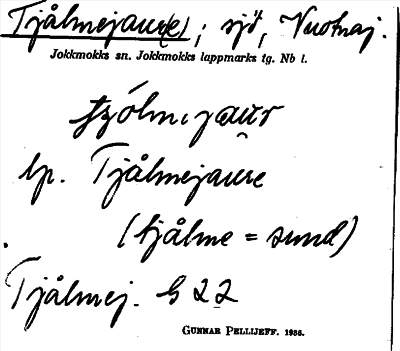 Tjålmejaur(e); sjö, Vuotnaj.
Jokkmokks sn. Jokkmokks lappmarks tg. Nb l.
tjólmejaur
lp. Tjålmejaure
(tjålme = sund)
Tjålmej. G 22
GUNNAR PELLIJEFF. 1956.